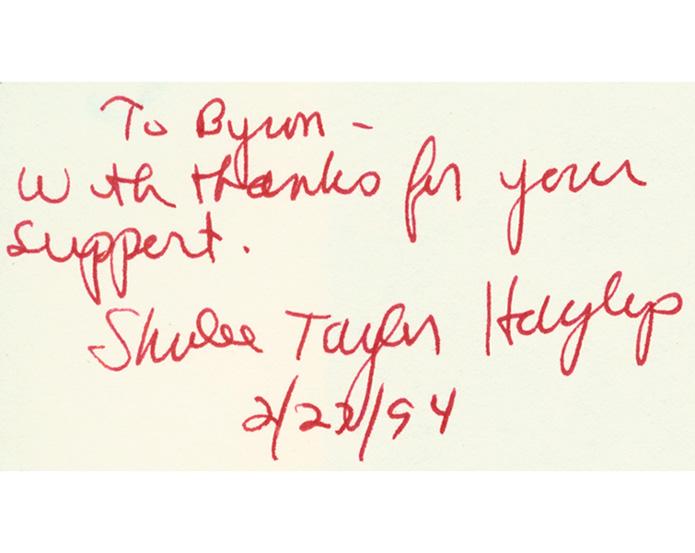 To Byron -
With thanks for your
support.
Shirlee Taylor Haizlip
2/22/94